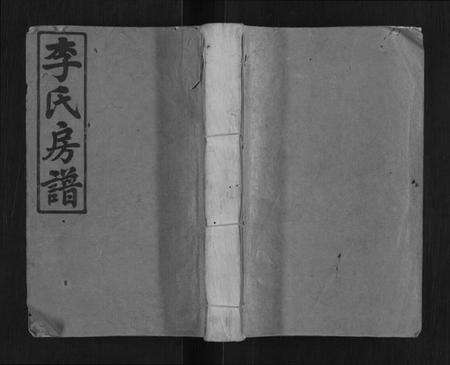 李氏房譜